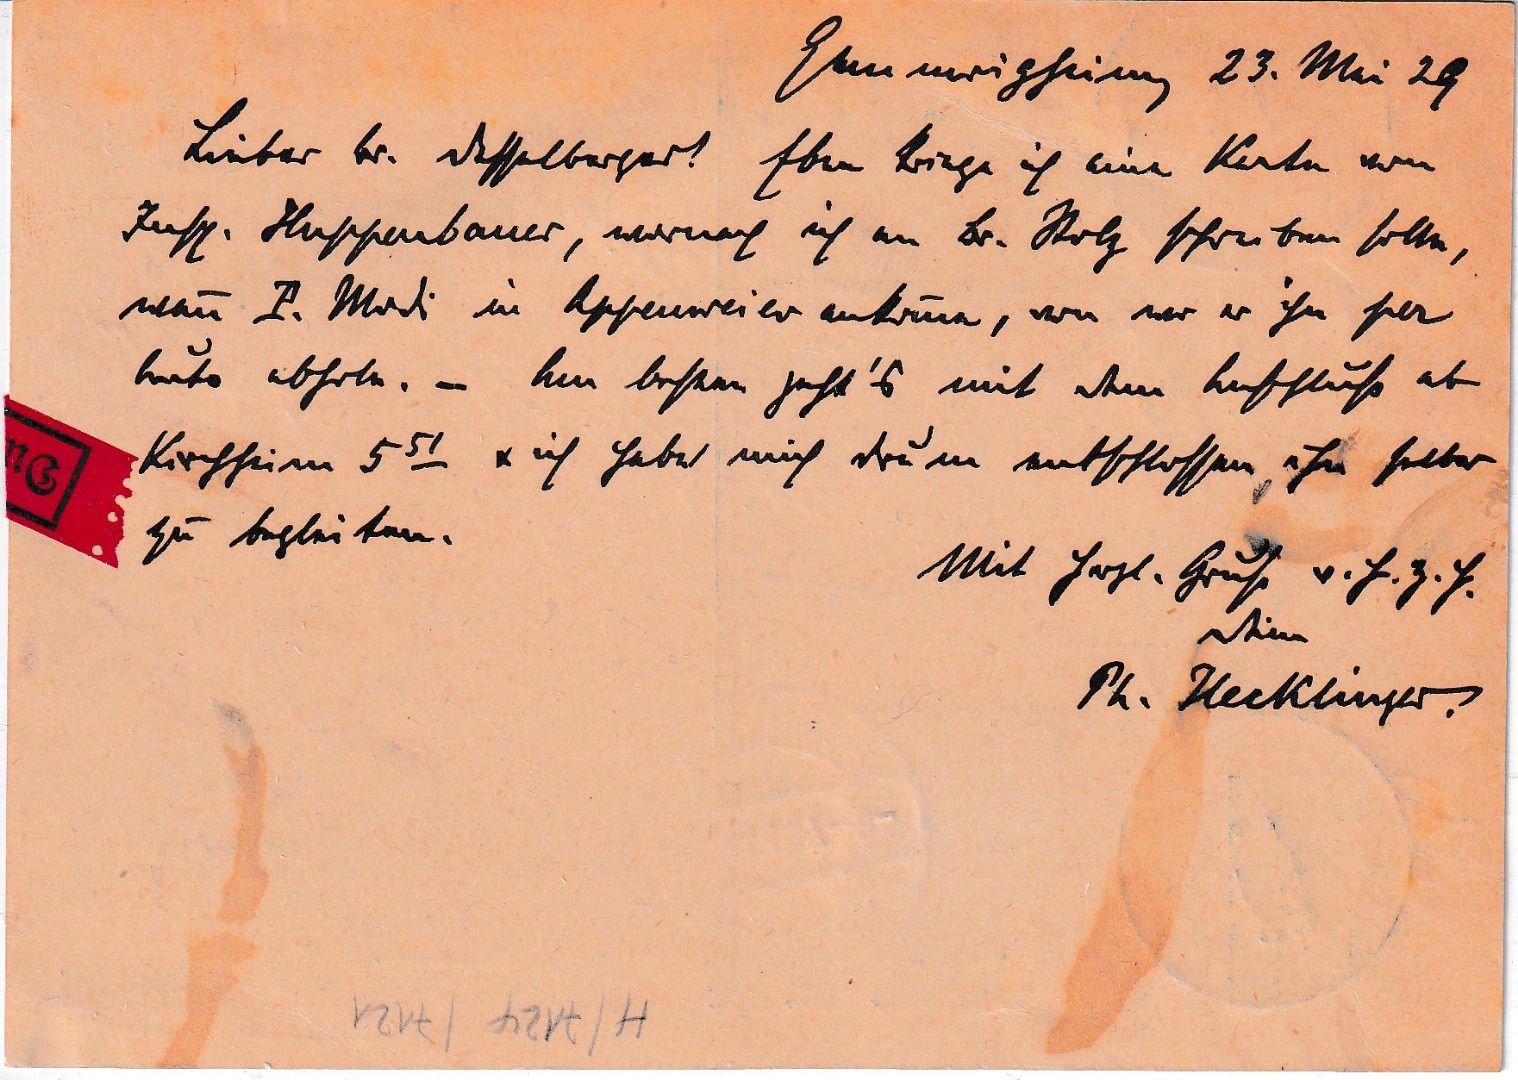 Gemmrigheim, 23. Mai 29
Lieber br. Desselberger! Eben kriege ich eine Karte von
Insp. Huppenbauer, wornach ich an Br. Stolz schreiben solle,
wañ P. Modi in Appenweier ankom̄e, von wo er ihn per
Auto abhole. – Am besten geht's mit dem Anschluss ab
Kirchheim 5 51 & ich habe mich drum entschlossen ihn selber
zu begleiten.
Mit herzl. Gruß v. H. z. H.
Dein
Ph. Hecklinger.
H/7124/7121